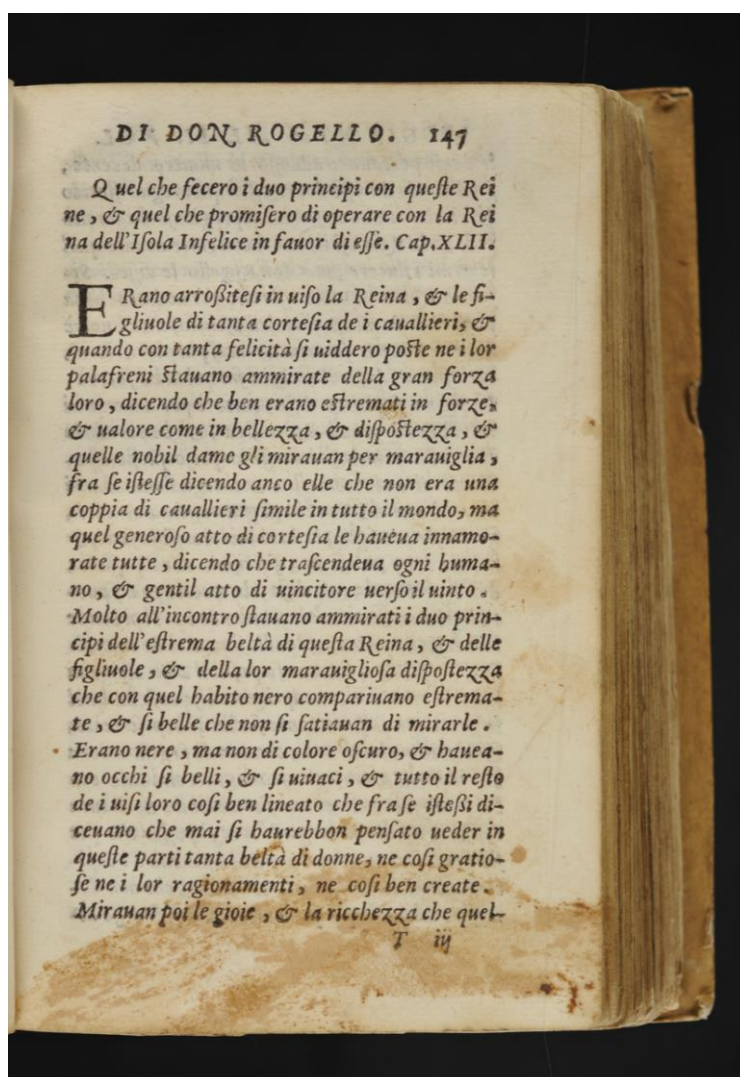 DI DON ROGELLO. 147
Quel che fecero i duo principi con queſte Rei
ne, & quel che promiſero di operare con la Rei
na dell'Iſola Infelice in fauor di eſſe. Cap.XLII.
ERano arroßiteſi in uiſo la Reina, & le fi-
gliuole di tanta corteſia de i cauallieri, &
quando con tanta felicità ſi uiddero poſte ne i lor
palafreni ſtauano ammirate della gran forza
loro, dicendo che ben erano eſtremati in forze,
& ualore come in bellezza, & diſpoſtezza, &
quelle nobil dame gli mirauan per marauiglia,
fra ſe iſteſſe dicendo anco elle che non era una
coppia di cauallieri ſimile in tutto il mondo, ma
quel generoſo atto di corteſia le haueua innamo-
rate tutte, dicendo che traſcendeua ogni huma-
no, & gentil atto di uincitore uerſo il uinto.
Molto all'incontro ſtauano ammirati i duo prin-
cipi dell'eſtrema beltà di queſta Reina, & delle
figliuole, & della lor marauiglioſa diſpoſtezza
che con quel habito nero compariuano eſtrema-
te, & ſi belle che non ſi ſatiauan di mirarle.
Erano nere, ma non di colore oſcuro, & hauea-
no occhi ſi belli, & ſi uiuaci, & tutto il reſto
de i uiſi loro coſi ben lineato che fra ſe iſteßi di-
ceuano che mai ſi haurebbon penſato ueder in
queſte parti tanta beltà di donne, ne coſi gratio-
ſe ne i lor ragionamenti, ne coſi ben create.
Mirauan poi le gioie, & la ricchezza che quel-
T iij